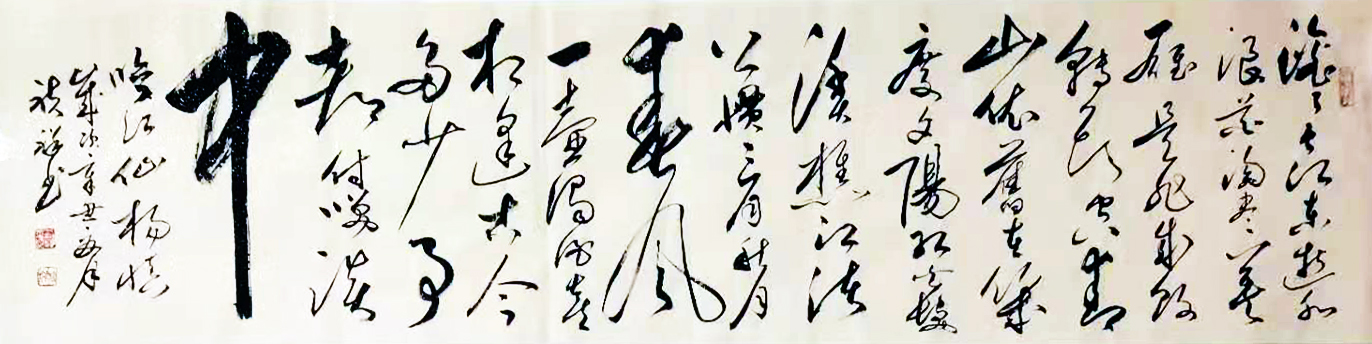 滚滚长江东逝水
浪花淘尽英
雄是非成败
转头空青
山依舊在幾
度夕陽红白髮
渔樵江渚
上慣看秋月
春风
一壶浊酒喜
相逢古今
多少事
都付笑谈
中
临江仙 杨慎
岁次辛丑五月
祥书